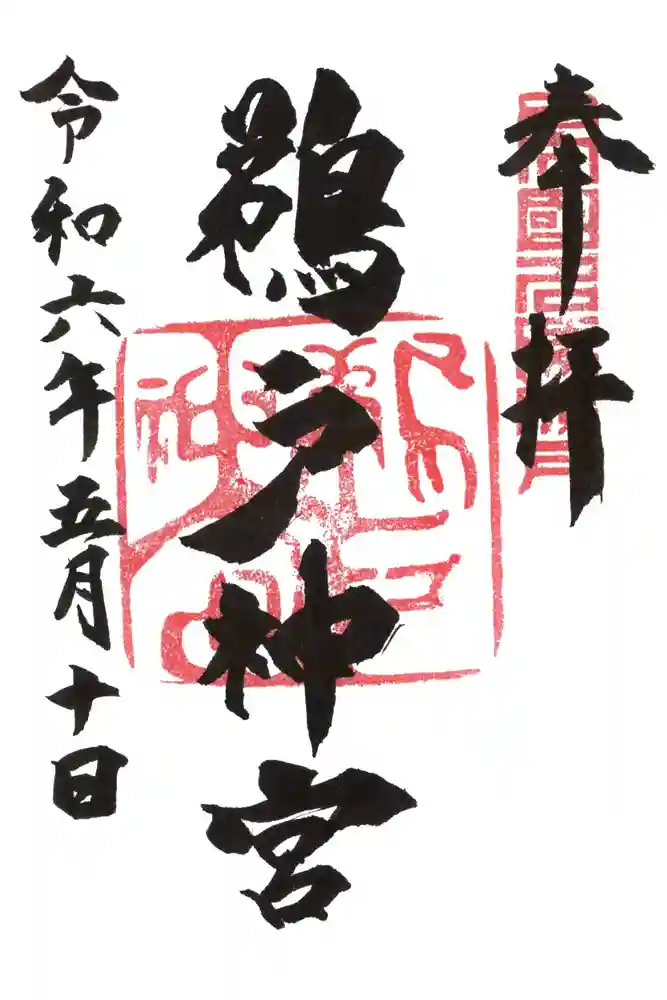 奉拝
鵜戸神宮
令和六年五月十日